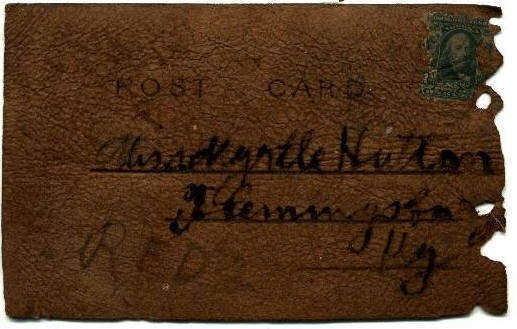 POST CARD
Miss Myrtle Hutton
Flemingsbu
Ky
RFD 2